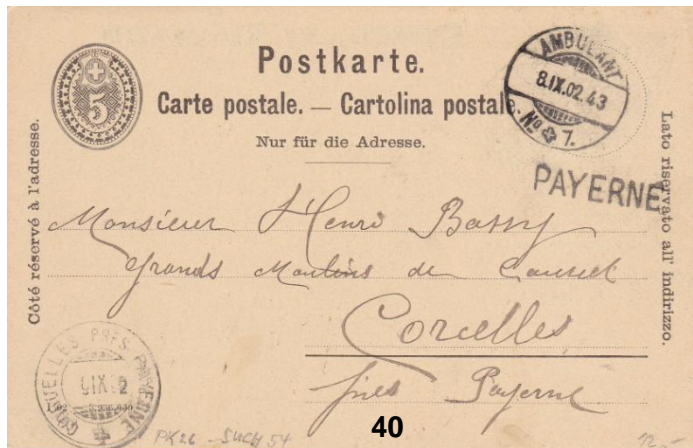 Postkarte.
Carte postale. — Cartolina postale.
Nur für die Adresse.
5
AMBULANT
8.IX.02.43
No 7.
PAYERNE
Côté réservé à l'adresse.
Lato riservato all' indirizzo.
Monsieur Henri Bassy
Grands Moulins de
Corcelles
près Payerne
CORCELLES PRÈS PAYERNE
PK26 - SUCH 54
40
12.-